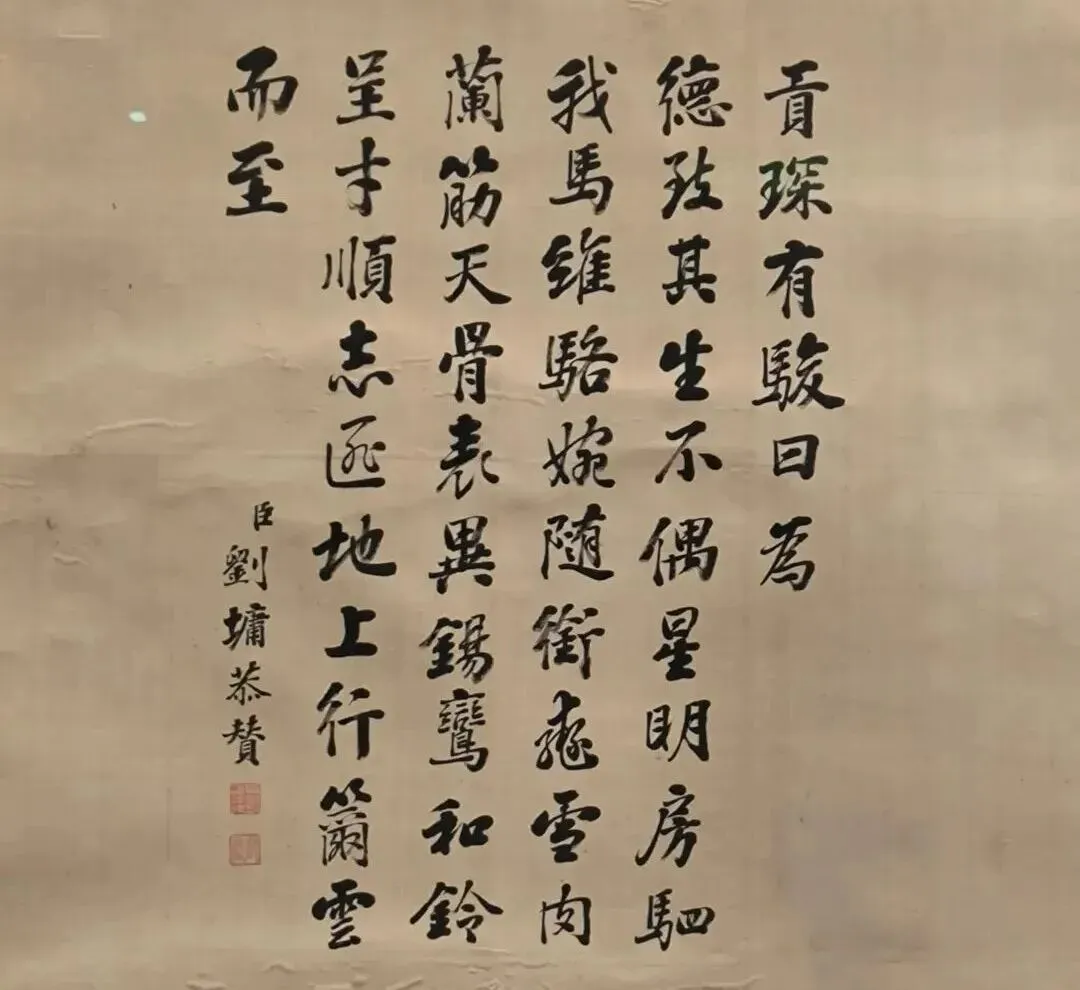 貢琛有駿曰為
德致其生不偶星明房駟
我馬維駱婉隨銜雪肉
蘭筋天骨表異錫鸞和鈴
呈才順志地上行籋雲
而至
臣劉墉恭贊